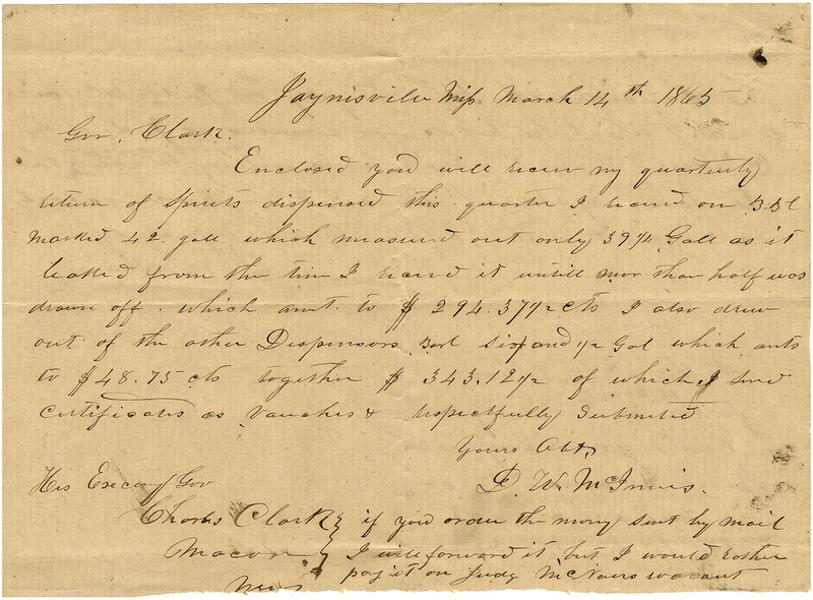 Jaynisville Miss March 14th 1865
Gov. Clark.
Enclosed you will receive my quarterly
return of Spirits dispensed this quarter I receivd on Bbl
marked 42. galls which measured out only 39 1/4 Galls as it
leaked from the time I receivd it untill mor than half was
drawn off. which amt. to $ 294.37 1/2 cts I also drew
out of the other Dispensors Barl six and 1/2 Gal which amts
to $48.75 cts together $ 343,12 1/2 of which I send
certificates as vouches & respectfully Submitted
Yours Obt,
His Excency Gov D. W. McInnis.
Charls Clark } if you order the mony sent by mail
Macon } I will forward it but I would rather
Miss pay it on Judg McNairs warant